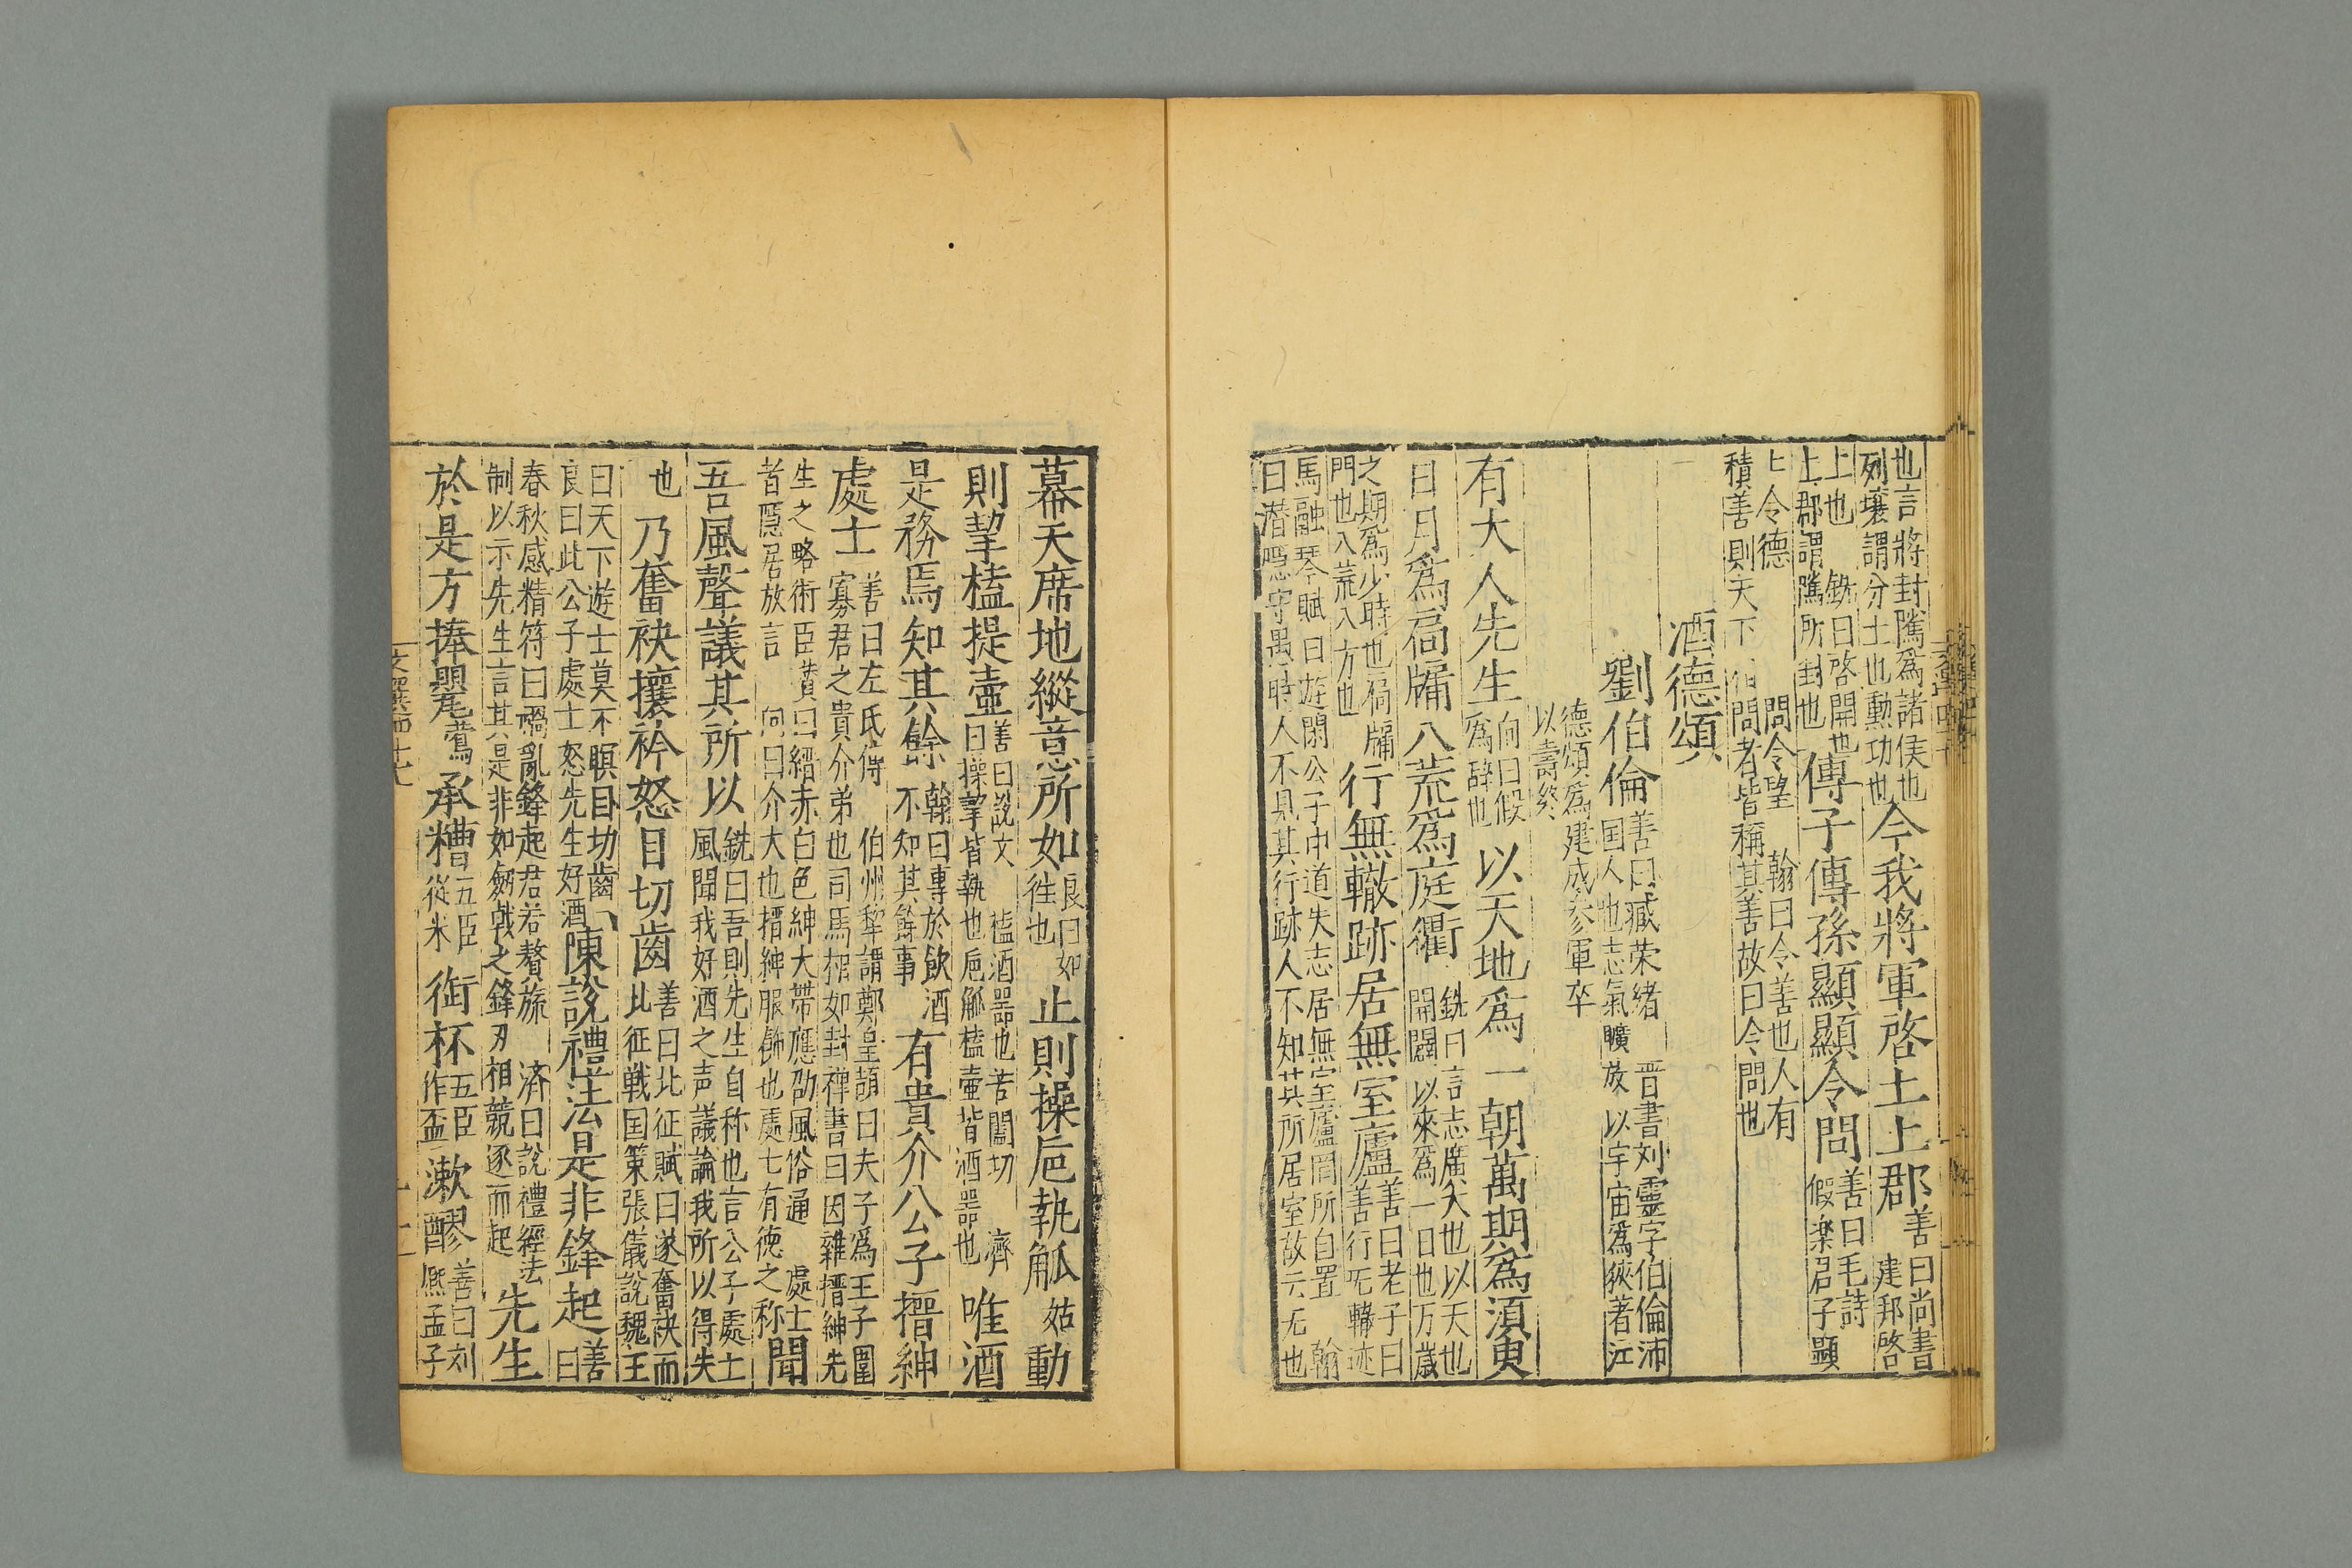 也言將封隲爲諸侯也
列壤謂分土也勳功也今我將軍啓土上郡善曰尚書建邦啓
上也銑曰啓開也
上郡謂隲所封也傳子傳孫顯顯令問善曰毛詩假楽君子顯
令德問令望翰曰令善也人有
積善則天下問者皆稱其善故曰令問也
酒德頌
劉伯倫善曰臧荣緒晋書刘靈字伯倫沛
国人也志氣曠放以宇宙爲狹著江
德頌爲建成参軍卒
以壽終
有大人先生向曰假爲辞也以天地爲一朝萬期爲須臾
日月爲扃牖八荒爲庭衢銑曰言志廣大也以天也
開闢以來爲一日也万歳
之期爲少時也扃牖
門也八荒八方也行無轍跡居無室廬善曰老子曰善行无轍迹
馬融琴賦曰遊閑公子中道失志居無室廬罔所自置翰
曰潛隱守愚時人不見其行跡人不知其所居室故云无也
幕天席地縱意所如良曰如往也止則操巵執觚姑動
則挈榼提壷善曰說文榼酒器也苦闔切濟
曰操挈皆執也巵觚榼壷皆酒器也唯酒
是務焉知其餘翰曰專於飲酒不知其餘事有貴介公子搢紳
處士善曰左氏傳伯州犂謂鄭皇頡曰夫子爲王子圍
寡君之貴介弟也司馬相如封禪書曰因雜搢紳先
生之略術臣瓉曰縉赤白色紳大帶應劭風俗通處士
者隱居放言向曰介大也搢紳服飾也處士有徳之称聞
吾風聲議其所以銑曰吾則先生自称也言公子處士
風聞我好酒之声議論我所以得失
也乃奮袂攘衿怒目切齒善曰北征賦曰遂奮袂而
北征戦国策張儀說魏王
曰天下遊士莫不瞋目切齒
良曰此公子處士怒先生好酒陳說禮法是非鋒起善曰
春秋感精符曰禍亂鋒起君若贅旒済曰說禮經法
制以示先生言其是非如劔戟之鋒刃相競逐而起先生
於是方捧甖鸎承糟五臣從米銜杯五臣作盃漱醪善曰刘熈孟子